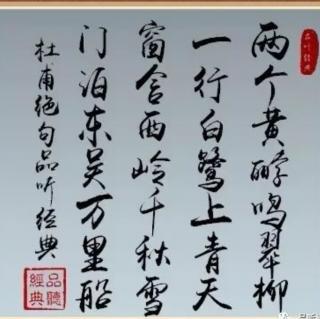 品听经典
两个黄鸣翠柳
一行白鹭上青天
窗含西岭千秋雪
门泊东吴万里船
杜甫绝句品听经典
品聽
經典